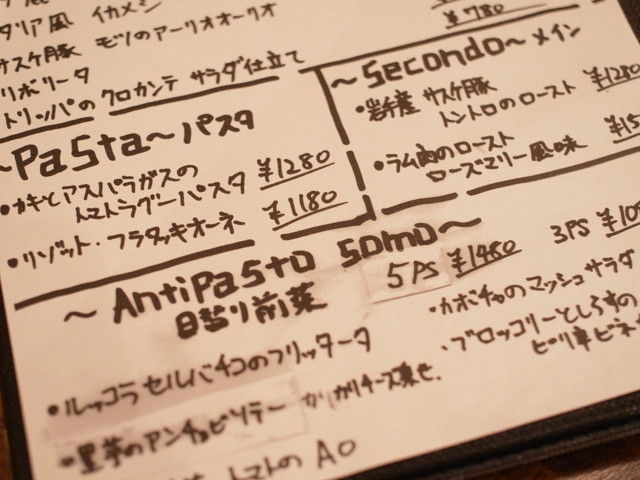 イカメシ
サスケ豚 モツのアーリオオーリオ
リボリータ
トリッパの クロカンテ サラダ仕立て
¥780
~Secondo~メイン
・岩手産 サスケ豚
トントロのロースト ¥1280
・ラム肉のロースト
ローズマリー風味
~Pasta~パスタ
・カキとアスパラガスの
トマトラグーパスタ ¥1280
・リゾット・フラッタキオーネ ¥1180
~AntiPasto Somo~
日替り前菜
5PS ¥1480
3PS
・ルッコラセルバチコのフリッタータ
・里芋のアンチョビソテー カリカリチーズ乗せ.
トマトの
・カボチャのマッシュサラダ
・ブロッコリーとしらすの
ピリ辛ビネ